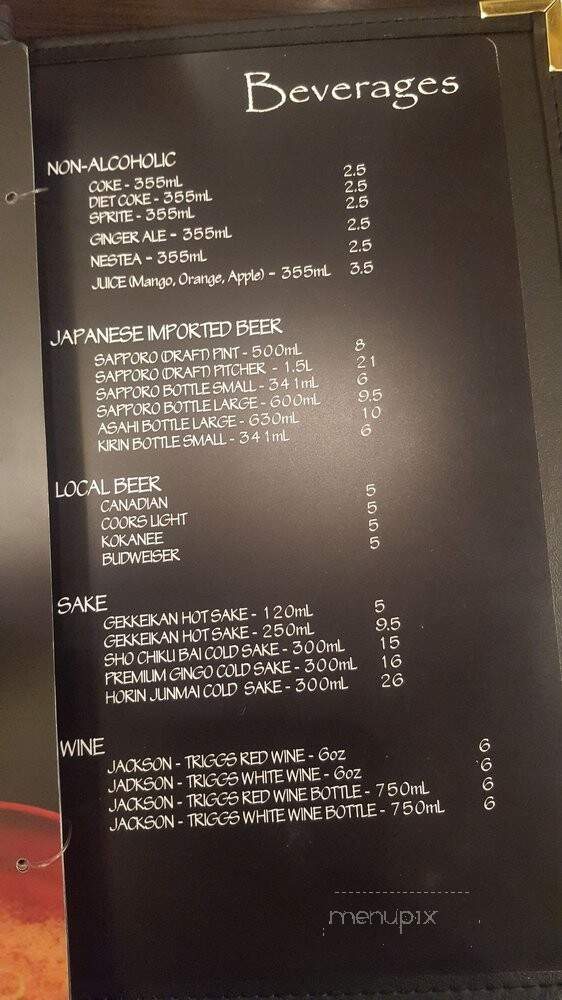 Beverages
NON-ALCOHOLIC
COKE - 355mL 2.5
DIET COKE - 355mL 2.5
SPRITE - 355mL 2.5
GINGER ALE - 355mL 2.5
NESTEA - 355mL 2.5
JUICE (Mango, Orange, Apple) - 355mL 3.5
JAPANESE IMPORTED BEER
SAPPORO (DRAFT) PINT - 500mL 8
SAPPORO (DRAFT) PITCHER - 1.5L 21
SAPPORO BOTTLE SMALL - 341mL 6
SAPPORO BOTTLE LARGE - 600mL 9.5
ASAHI BOTTLE LARGE - 630mL 10
KIRIN BOTTLE SMALL - 341mL 6
LOCAL BEER
CANADIAN 5
COORS LIGHT 5
KOKANEE 5
BUDWEISER 5
SAKE
GEKKEIKAN HOT SAKE - 120mL 5
GEKKEIKAN HOT SAKE - 250mL 9.5
SHO CHIKU BAI COLD SAKE - 300mL 15
PREMIUM GINGO COLD SAKE - 300mL 16
HORIN JUNMAI COLD SAKE - 300mL 26
WINE
JACKSON - TRIGGS RED WINE - 6oz 6
JADKSON - TRIGGS WHITE WINE - 6oz 6
JACKSON - TRIGGS RED WINE BOTTLE - 750mL 6
JACKSON - TRIGGS WHITE WINE BOTTLE - 750mL 6
menupix